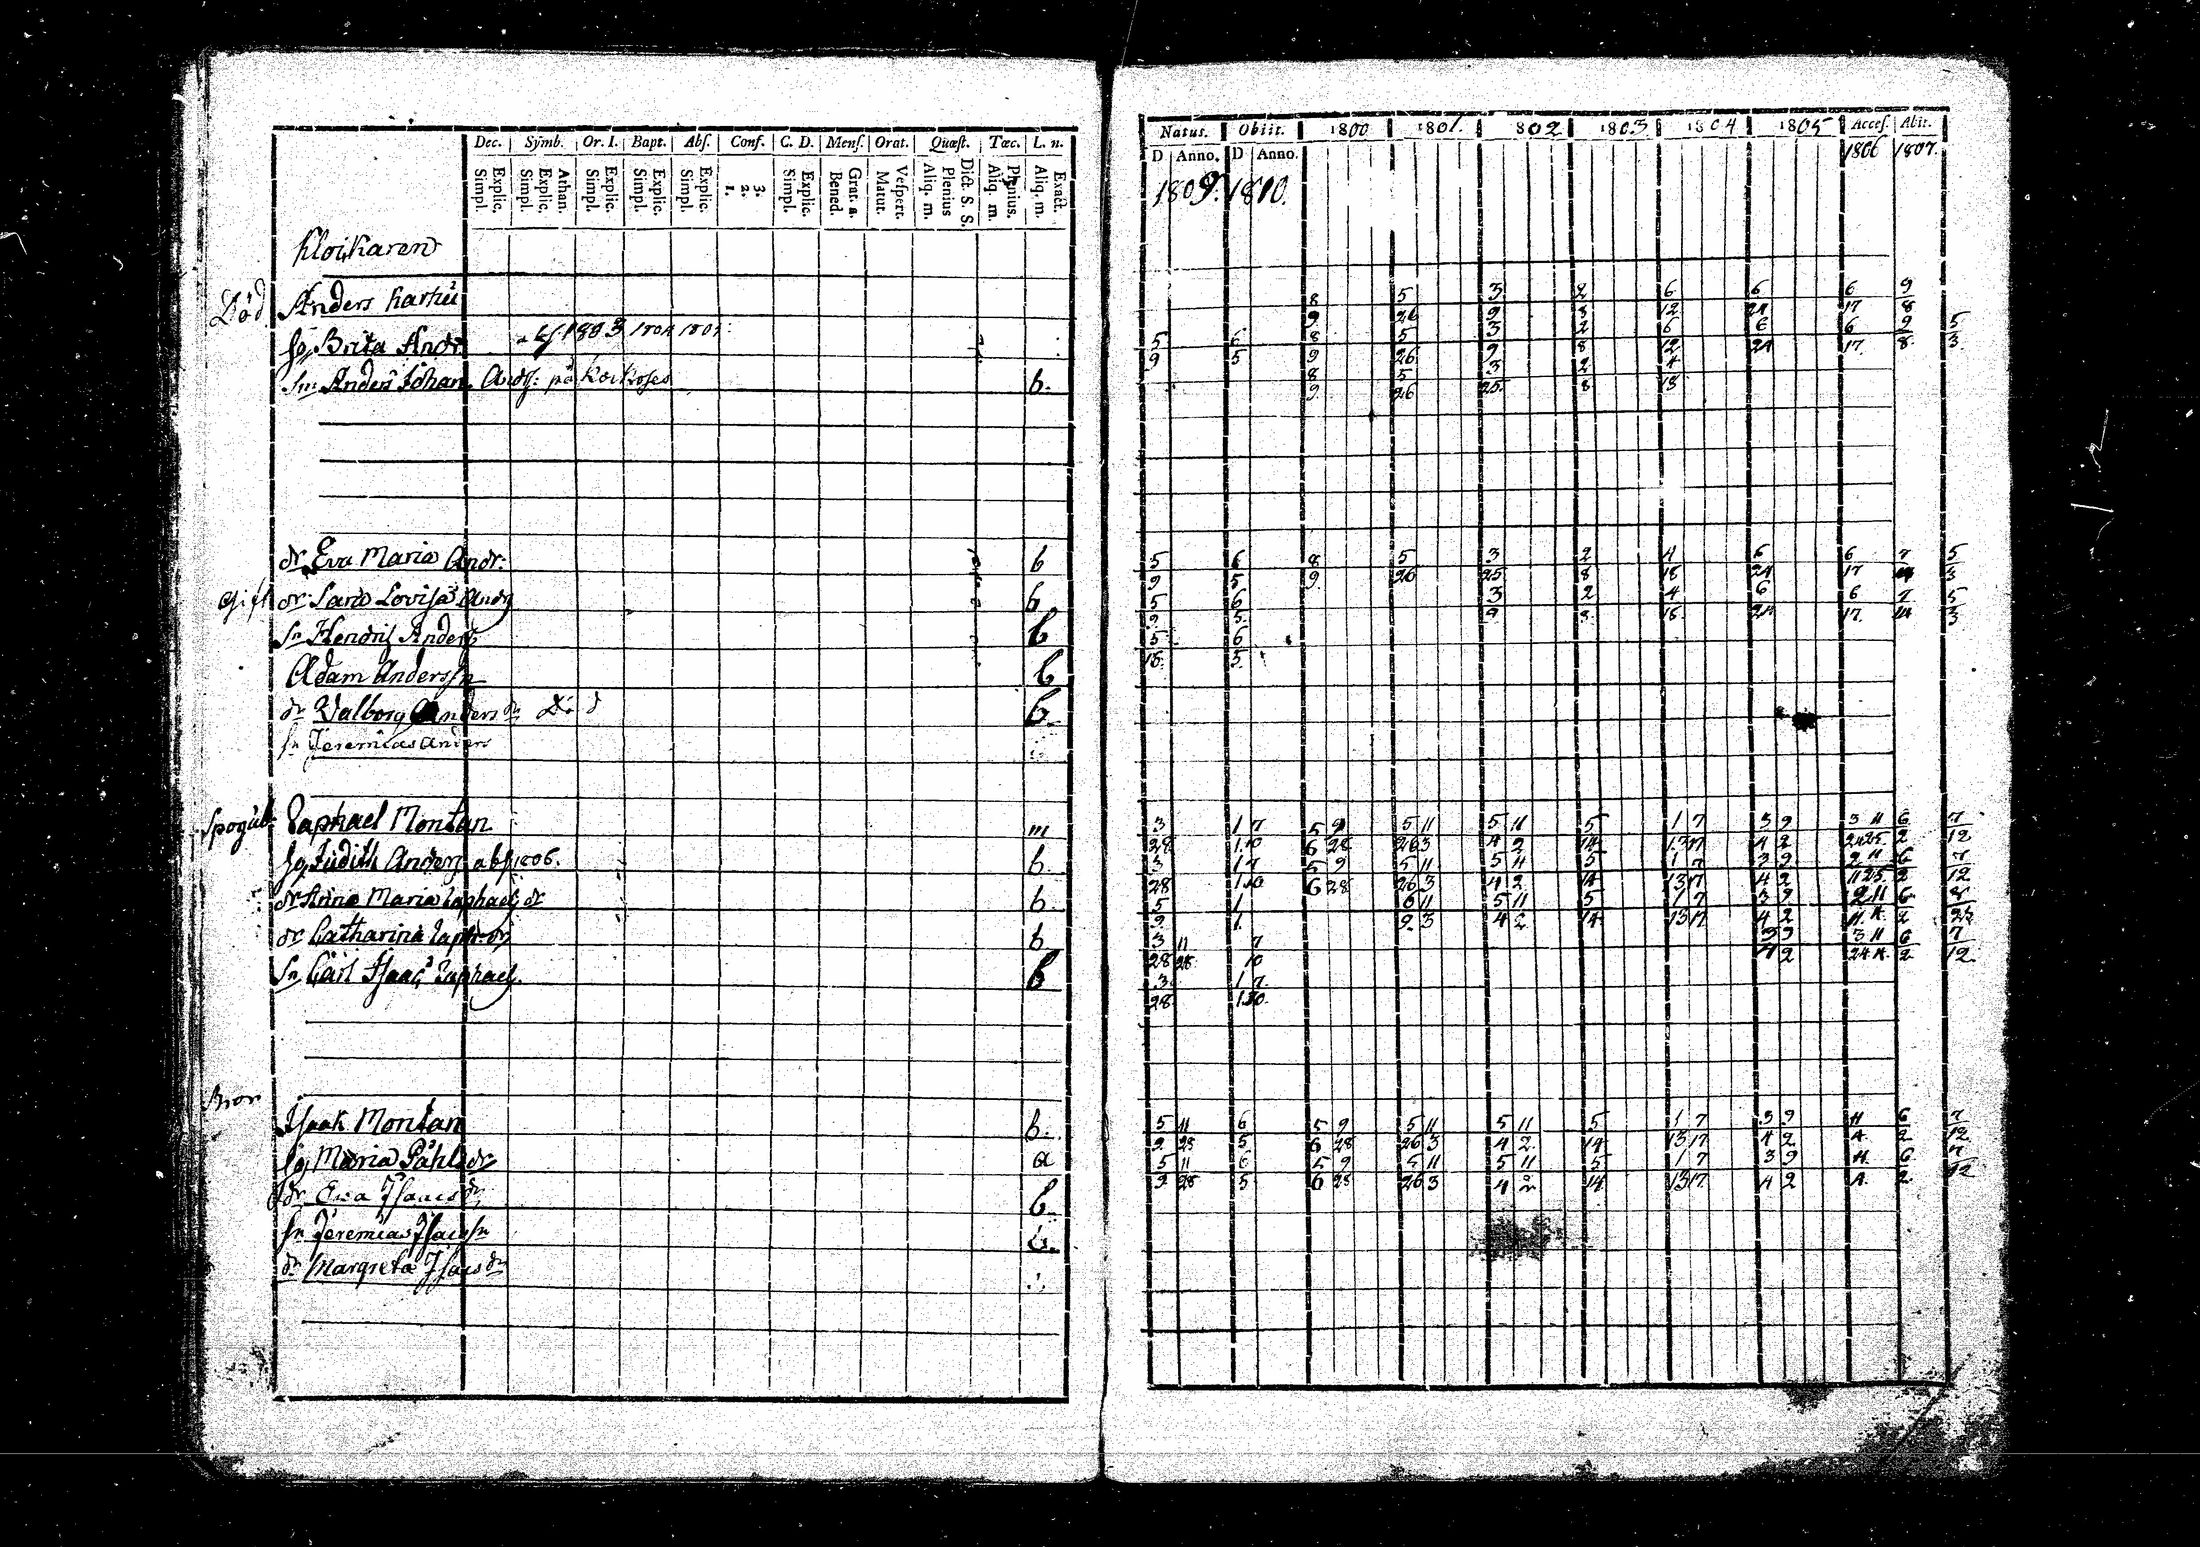 Dec. Symb. Or. I. Bapt. Abs. Conf. C. D. Menf. Orat. Quæst. Tœc. L. n.
Simpl. Explic. Simpl. Explic. Athan. Simpl. Explic. Simpl. Explic. Simpl. Explic. 1. 2. 3. Simpl. Explic. Bened. Grat. a. Matut. Vespert. Aliq. m. Plenius Dict. S. S. Aliq. m. Plenius. Aliq. m. Exact.
Död Anders
Brita Andr. 1803 1804 1805
Sn Anders Johan Anders: på b.
dr Eva Maria Andr: b
Gift dr Lovisa Andrs b
Sn Hendric Anders b
Adam Anderssn b
dr Valborg Anders dr Död b
sn Jeremias Anders
Raphael Montan m
Judith Anders abs. 1806. b
dr Anna Maria Raphaels dr b
dr Catharina Raph. dr b
Sn Carl Isaac Raphaels. b
Bror
Isaak Montan b.
Maria Påhls dr a
dr Eva Isaacs dr b
sn Jeremias Isacsn b.
dr Margreta Isacs dr
Natus. Obiit. 1800 1801. 1802 1803 1804 1805 Acces. Abit.
D Anno. D Anno. 1806 1807.
1809. 1810.
8 5 3 2 6 6 6 9
9 26 9 8 12 24 17 8
5 6 8 5 3 2 6 6 6 9 5
9 5 9 26 9 8 12 24 17. 8. 3.
8 5 3 2 4
9 26 25 8 18
5 6 8 5 3 2 4 6 6 7 5
9 5 9 26 25 8 18 24 17 3
5 6 3 2 4 6 6 7 5
9 5 9 8 24 17. 14 3
5 6
18. 5.
3 1 7 5 9 5 11 5 11 5 1 7 3 9 3 11 6 7
28 1.10 6 28 26 3 4 2 14 13 17 4 2 24 25 2 12
3 1 7 5 9 5 11 5 11 5 1 7 3 9 2 11 6 7
28 1.10 6 28 26 3 4 2 14 13 17 4 2 11 25 2 12
5 1 6 11 5 11 5 1 7 3 9 2 11 6 8
9 1. 9. 3 4 2 14 13 17 4 2 11 4 2 23
3 11 7 3 9 3 11 6 7
28 28 10 4 2 24 4. 2 12
3 1 7
28 1.10
5 11 6 5 9 5 11 5 11 5 1 7 3 9 11 6 7
9 28 5 6 28 26 3 4 2 14 13 17 4 2 4. 2 12
5 11 6 5 9 5 11 5 11 5 1 7 3 9 11. 6 7
9 28 5 6 28 26 3 4 2 14 13 17 4 2 4. 2 12